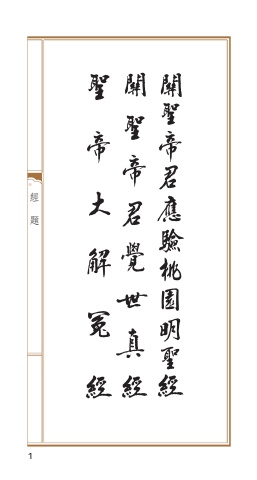 關聖帝君應驗桃園明聖經
關聖帝君覺世真經
聖帝大解冤經
經題
1